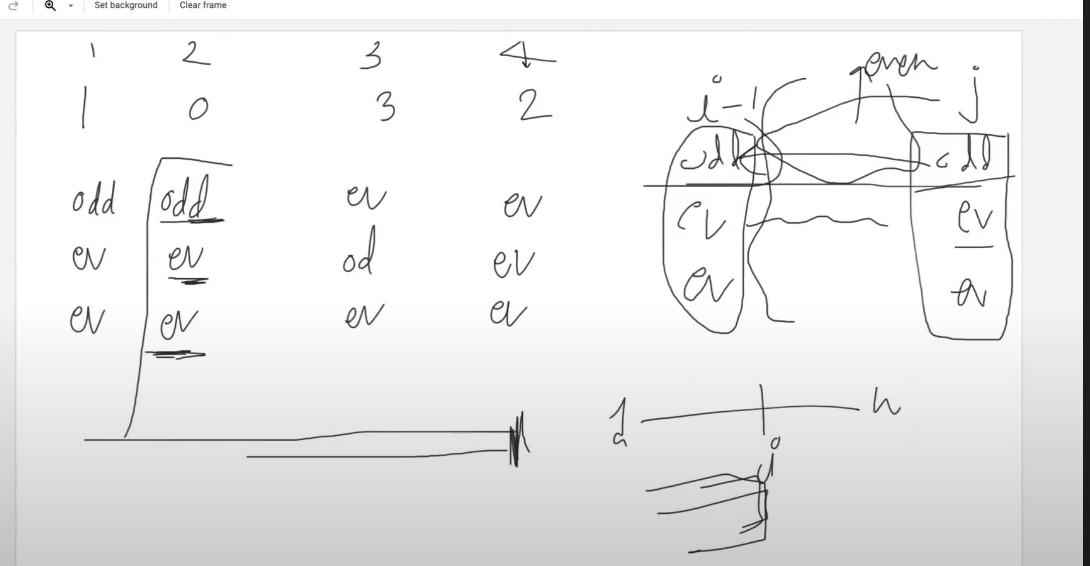 Set background Clear frame
1 2 3 4
1 0 3 2
odd odd ev ev
ev ev od ev
ev ev ev ev
even
i-1 j
odd odd
ev ev
ev ev
1 n
j